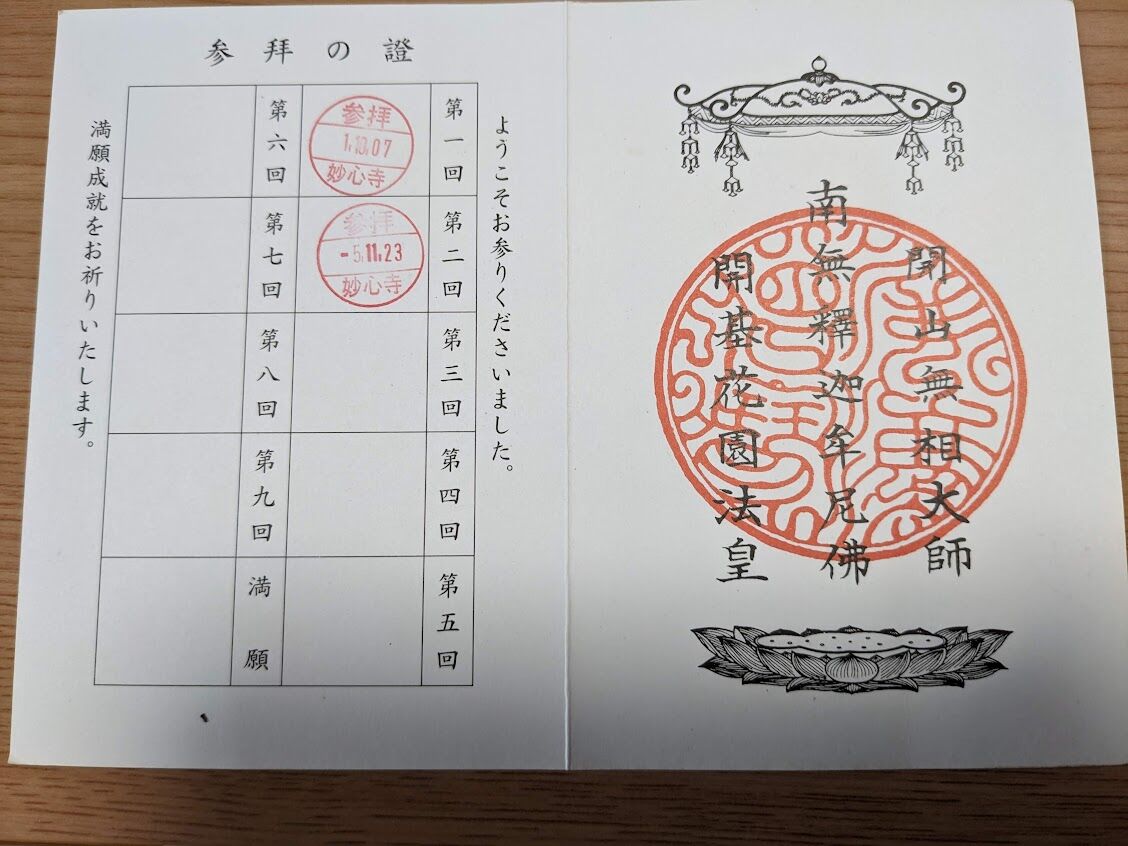 開山無相大師
南無釋迦牟尼佛
開基花園法皇
参拝の證
ようこそお参りくださいました。
第一回
参拝
1.10.07
妙心寺
第二回
参拝
-5.11.23
妙心寺
第三回
第四回
第五回
第六回
第七回
第八回
第九回
満願
満願成就をお祈りいたします。